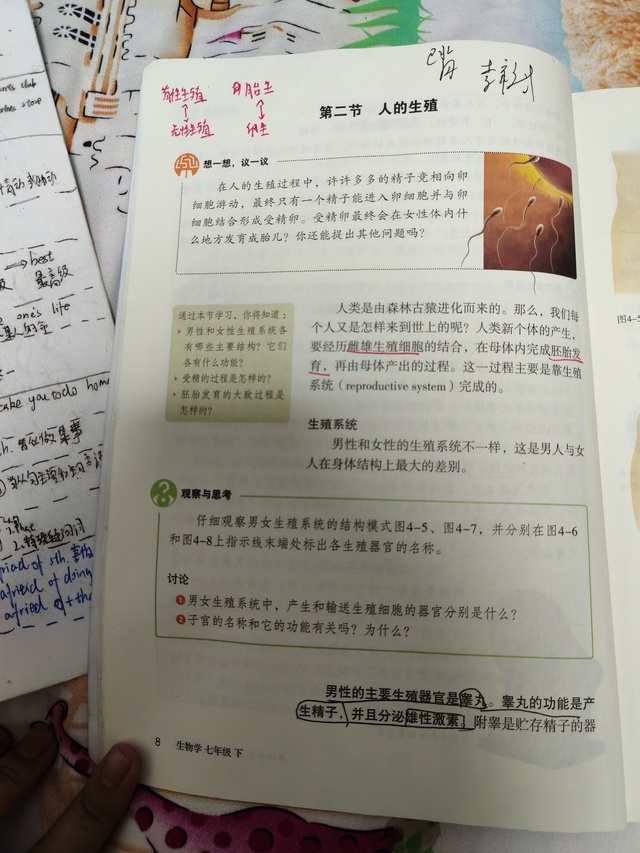 有性生殖
胎生
无性生殖
卵生
第二节 人的生殖
想一想，议一议
在人的生殖过程中，许许多多的精子竞相向卵
细胞游动，最终只有一个精子能进入卵细胞并与卵
细胞结合形成受精卵。受精卵最终会在女性体内什
么地方发育成胎儿？你还能提出其他问题吗？
通过本节学习，你将知道：
男性和女性生殖系统各
有哪些主要结构？它们
各有什么功能？
受精的过程是怎样的？
胚胎发育的大致过程是
怎样的？
人类是由森林古猿进化而来的。那么，我们每
个人又是怎样来到世上的呢？人类新个体的产生，
要经历雌雄生殖细胞的结合，在母体内完成胚胎发
育，再由母体产出的过程。这一过程主要是靠生殖
系统（reproductive system）完成的。
生殖系统
男性和女性的生殖系统不一样，这是男人与女
人在身体结构上最大的差别。
观察与思考
仔细观察男女生殖系统的结构模式图4-5、图4-7，并分别在图4-6
和图4-8上指示线末端处标出各生殖器官的名称。
讨论
1 男女生殖系统中，产生和输送生殖细胞的器官分别是什么？
2 子宫的名称和它的功能有关吗？为什么？
男性的主要生殖器官是睾丸。睾丸的功能是产
生精子，并且分泌雄性激素。附睾是贮存精子的器
8 生物学 七年级 下
图4-5
best
最高级
one's life
take you to do hom
afraid of sth.
afraid of doing